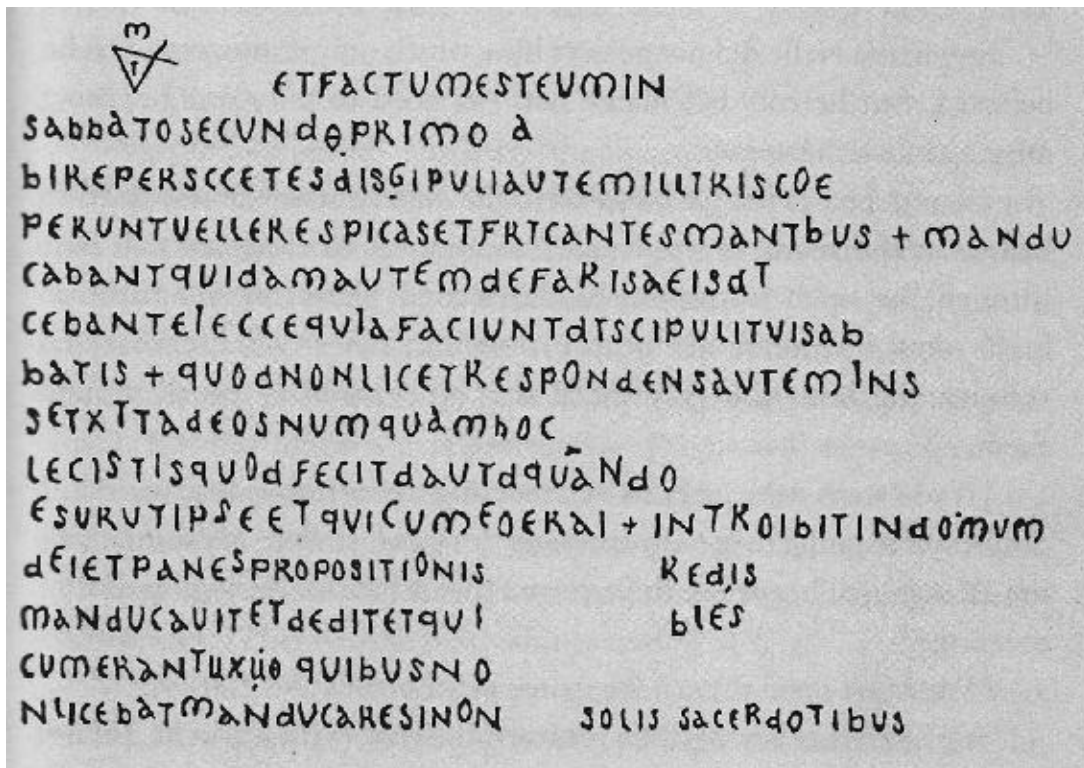 ETFACTUMESTEUMIN
SABBATOSECUNDOPRIMO A
BIREPERSCCETESDISGIPULIAUTEMILLITRISCOE
PERUNTVELLERESPICASETFRTCANTESMANTBUS + MANDU
CABANTQUIDAMAUTEMDEFARISAEISDT
CEBANTEIECCEQUIAFACIUNTDTSCIPULITVISAB
BATIS + QUODNONLICETRESPONDENSAUTEMINS
SETXTTADEOSNUMQUAMHOC
LECISTISQUODFECITDAUTDQUANDO
ESURUTIPSEETQVICUMEOERAI + INTROIBITINDOMUM
DEIETPANESPROPOSITIONIS REDIS
MANDUCAVITETDEDITETQUI BLES
CUMERANTUXUO QUIBUSNO
NLICEBATMANDUCARESINON SOLIS SACERDOTIBUS